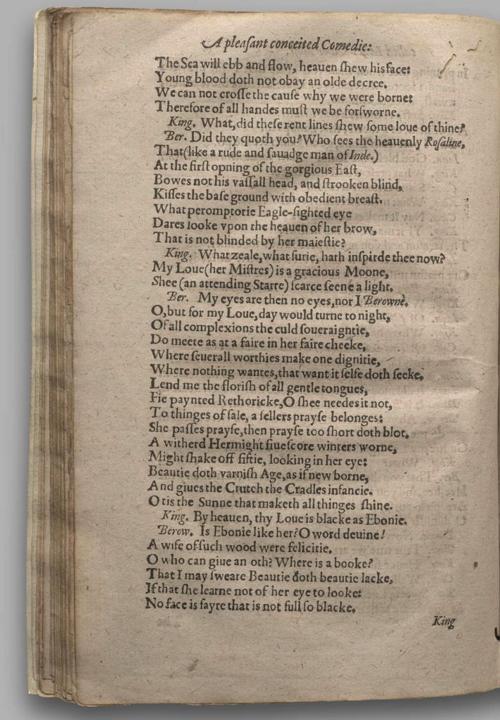 A pleasant conceited Comedie:
The Sea will ebb and flow, heauen shew his face:
Young blood doth not obay an olde decree.
We can not crosse the cause why we were borne:
Therefore of all handes must we be forsworne.
King. What, did these rent lines shew some loue of thine?
Ber. Did they quoth you? Who sees the heauenly Rosaline,
That (like a rude and sauadge man of Inde.)
At the first opning of the gorgious East,
Bowes not his vassall head, and strooken blind,
Kisses the base ground with obedient breast.
What peromptorie Eagle-sighted eye
Dares looke vpon the heauen of her brow,
That is not blinded by her maiestie?
King. What zeale, what furie, hath inspirde thee now?
My Loue (her Mistres) is a gracious Moone,
Shee (an attending Starre) scarce seene a light.
Ber. My eyes are then no eyes, nor I Berowne.
O, but for my Loue, day would turne to night,
Of all complexions the culd soueraigntie,
Do meete as at a faire in her faire cheeke,
Where seuerall worthies make one dignitie,
Where nothing wantes, that want it selfe doth seeke.
Lend me the florish of all gentle tongues,
Fie paynted Rethoricke, O shee needes it not,
To thinges of sale, a sellers prayse belonges:
She passes prayse, then prayse too short doth blot.
A witherd Hermight fiuescore winters worne,
Might shake off fiftie, looking in her eye:
Beautie doth varnish Age, as if new borne,
And giues the Crutch the Cradles infancie.
O tis the Sunne that maketh all thinges shine.
King. By heauen, thy Loue is blacke as Ebonie.
Berow. Is Ebonie like her? O word deuine!
A wife of such wood were felicitie.
O who can giue an oth? Where is a booke?
That I may sweare Beautie doth beautie lacke,
If that she learne not of her eye to looke:
No face is fayre that is not full so blacke,
King